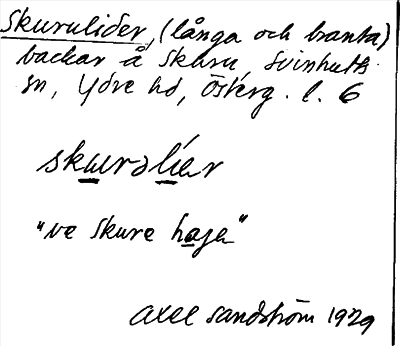 Skurulider, (långa och branta)
backar å Skuru, Svinhults
sn, Ydre hd, Österg. l. 6
skurəlíer
"ve skure haga"
Axel Sandström 1929